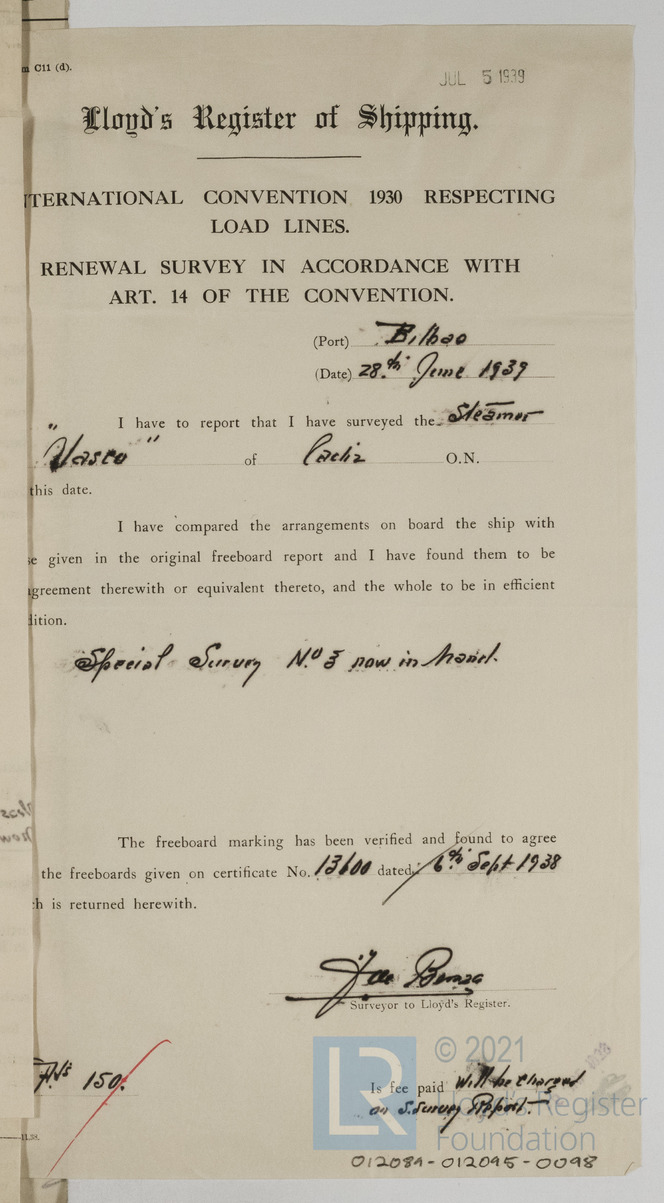 m C11 (d).
JUL 5 1939
Lloyd's Register of Shipping.
NTERNATIONAL CONVENTION 1930 RESPECTING
LOAD LINES.
RENEWAL SURVEY IN ACCORDANCE WITH
ART. 14 OF THE CONVENTION.
(Port) Bilbao
(Date) 28th June 1939
I have to report that I have surveyed the Steamer
"Vasco" of Cadiz O.N.
this date.
I have compared the arrangements on board the ship with
se given in the original freeboard report and I have found them to be
agreement therewith or equivalent thereto, and the whole to be in efficient
dition.
Special Survey No 3 now in hand.
The freeboard marking has been verified and found to agree
the freeboards given on certificate No. 13600 dated 6th Sept 1938
ch is returned herewith.
Surveyor to Lloyd's Register.
150.
Is fee paid Will be charged
on S. Survey Report.
© 2021
Lloyd's Register
Foundation
LR
11.38.
012089-012095-0098